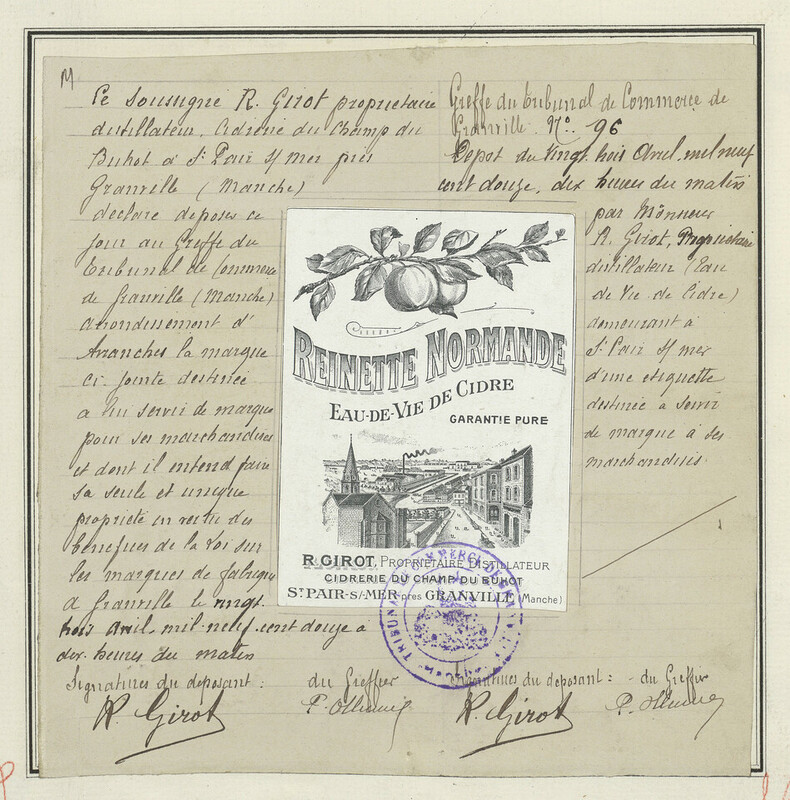 M
Le soussigné R. Girot propriétaire
distillateur, Cidrerie du Champ du
Buhot à St Pair s/ mer près
Granville (Manche)
déclare déposer ce
jour au Greffe du
tribunal de Commerce
de Granville (Manche)
arrondissement d'
Avranches la marque
ci-jointe destinée
à lui servir de marque
pour ses marchandises
et dont il entend faire
sa seule et unique
propriété en vertu des
bénéfices de la loi sur
les marques de fabrique
à Granville le vingt
trois avril mil neuf cent douze à
dix heures du matin
Signatures du déposant : du Greffier
R. Girot
Greffe du tribunal de Commerce de
Granville. No. 96
Dépot du vingt trois Avril mil neuf
cent douze, dix heures du matin
par Monsieur
R. Girot, Propriétaire
distillateur (Eau
de Vie de Cidre)
demeurant à
St Pair s/ mer
d'une etiquette
destinée à servir
de marque à ses
marchandises
Signatures du déposant : - du Greffier
R. Girot
REINETTE NORMANDE
EAU-DE-VIE DE CIDRE
GARANTIE PURE
R. GIROT, PROPRIÉTAIRE DISTILLATEUR
CIDRERIE DU CHAMP DU BUHOT
ST PAIR-S/-MER près GRANVILLE (Manche)